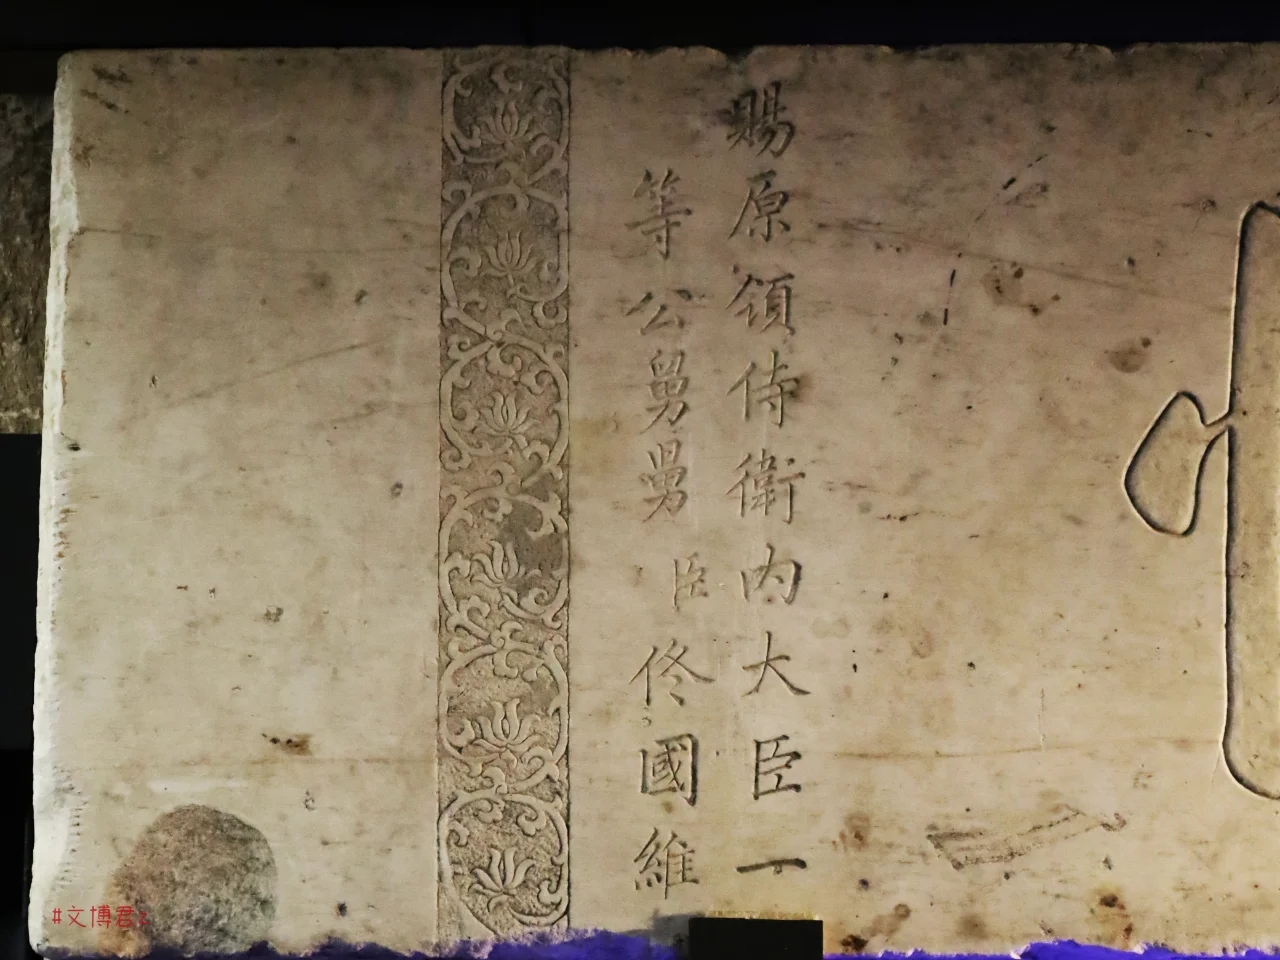 賜原領侍衛內大臣一
等公舅舅臣佟國維
#文博君z